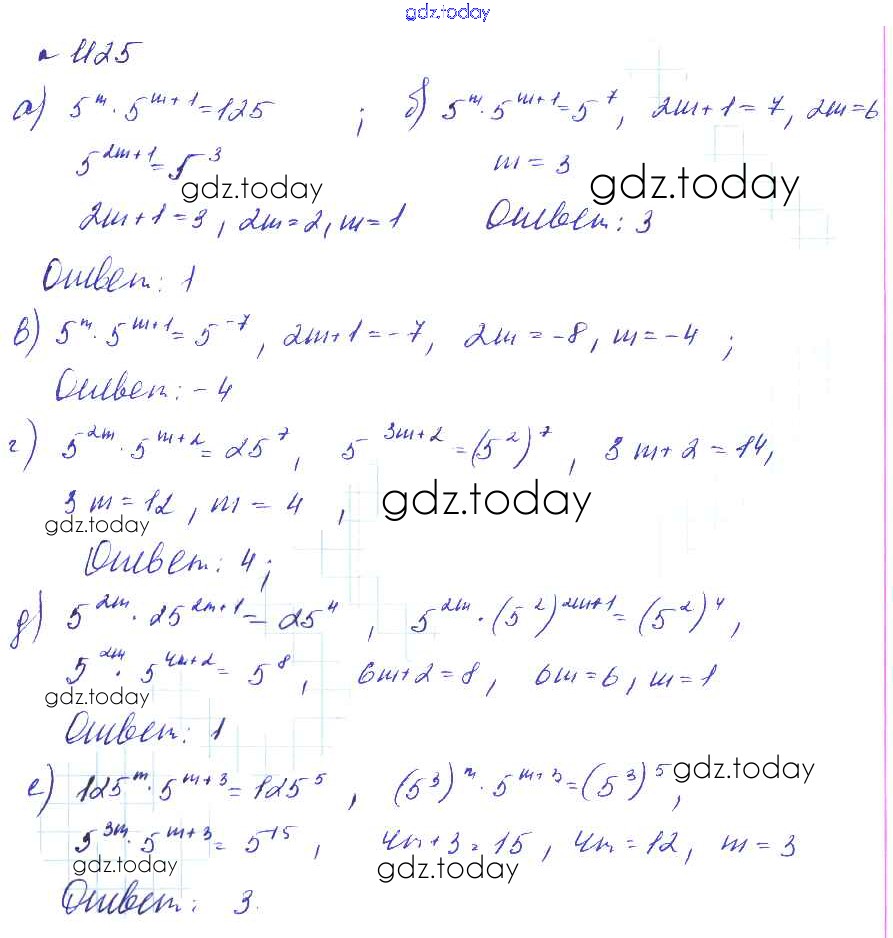 gdz.today
№ 1125
а) 5^m · 5^(m+1) = 125 ; б) 5^m · 5^(m+1) = 5^7, 2m+1 = 7, 2m = 6
5^(2m+1) = 5^3 m = 3
gdz.today gdz.today
2m+1 = 3, 2m = 2, m = 1 Ответ: 3
Ответ: 1
в) 5^m · 5^(m+1) = 5^(-7), 2m+1 = -7, 2m = -8, m = -4 ;
Ответ: -4
г) 5^(2m) · 5^(m+2) = 25^7, 5^(3m+2) = (5^2)^7, 3m+2 = 14,
3m = 12, m = 4, gdz.today
gdz.today
Ответ: 4;
д) 5^(2m) · 25^(2m+1) = 25^4, 5^(2m) · (5^2)^(2m+1) = (5^2)^4,
5^(2m) · 5^(4m+2) = 5^8, 6m+2 = 8, 6m = 6, m = 1
gdz.today
Ответ: 1
е) 125^m · 5^(m+3) = 125^5, (5^3)^m · 5^(m+3) = (5^3)^5, gdz.today
5^(3m) · 5^(m+3) = 5^15, 4m+3 = 15, 4m = 12, m = 3
gdz.today gdz.today
Ответ: 3.